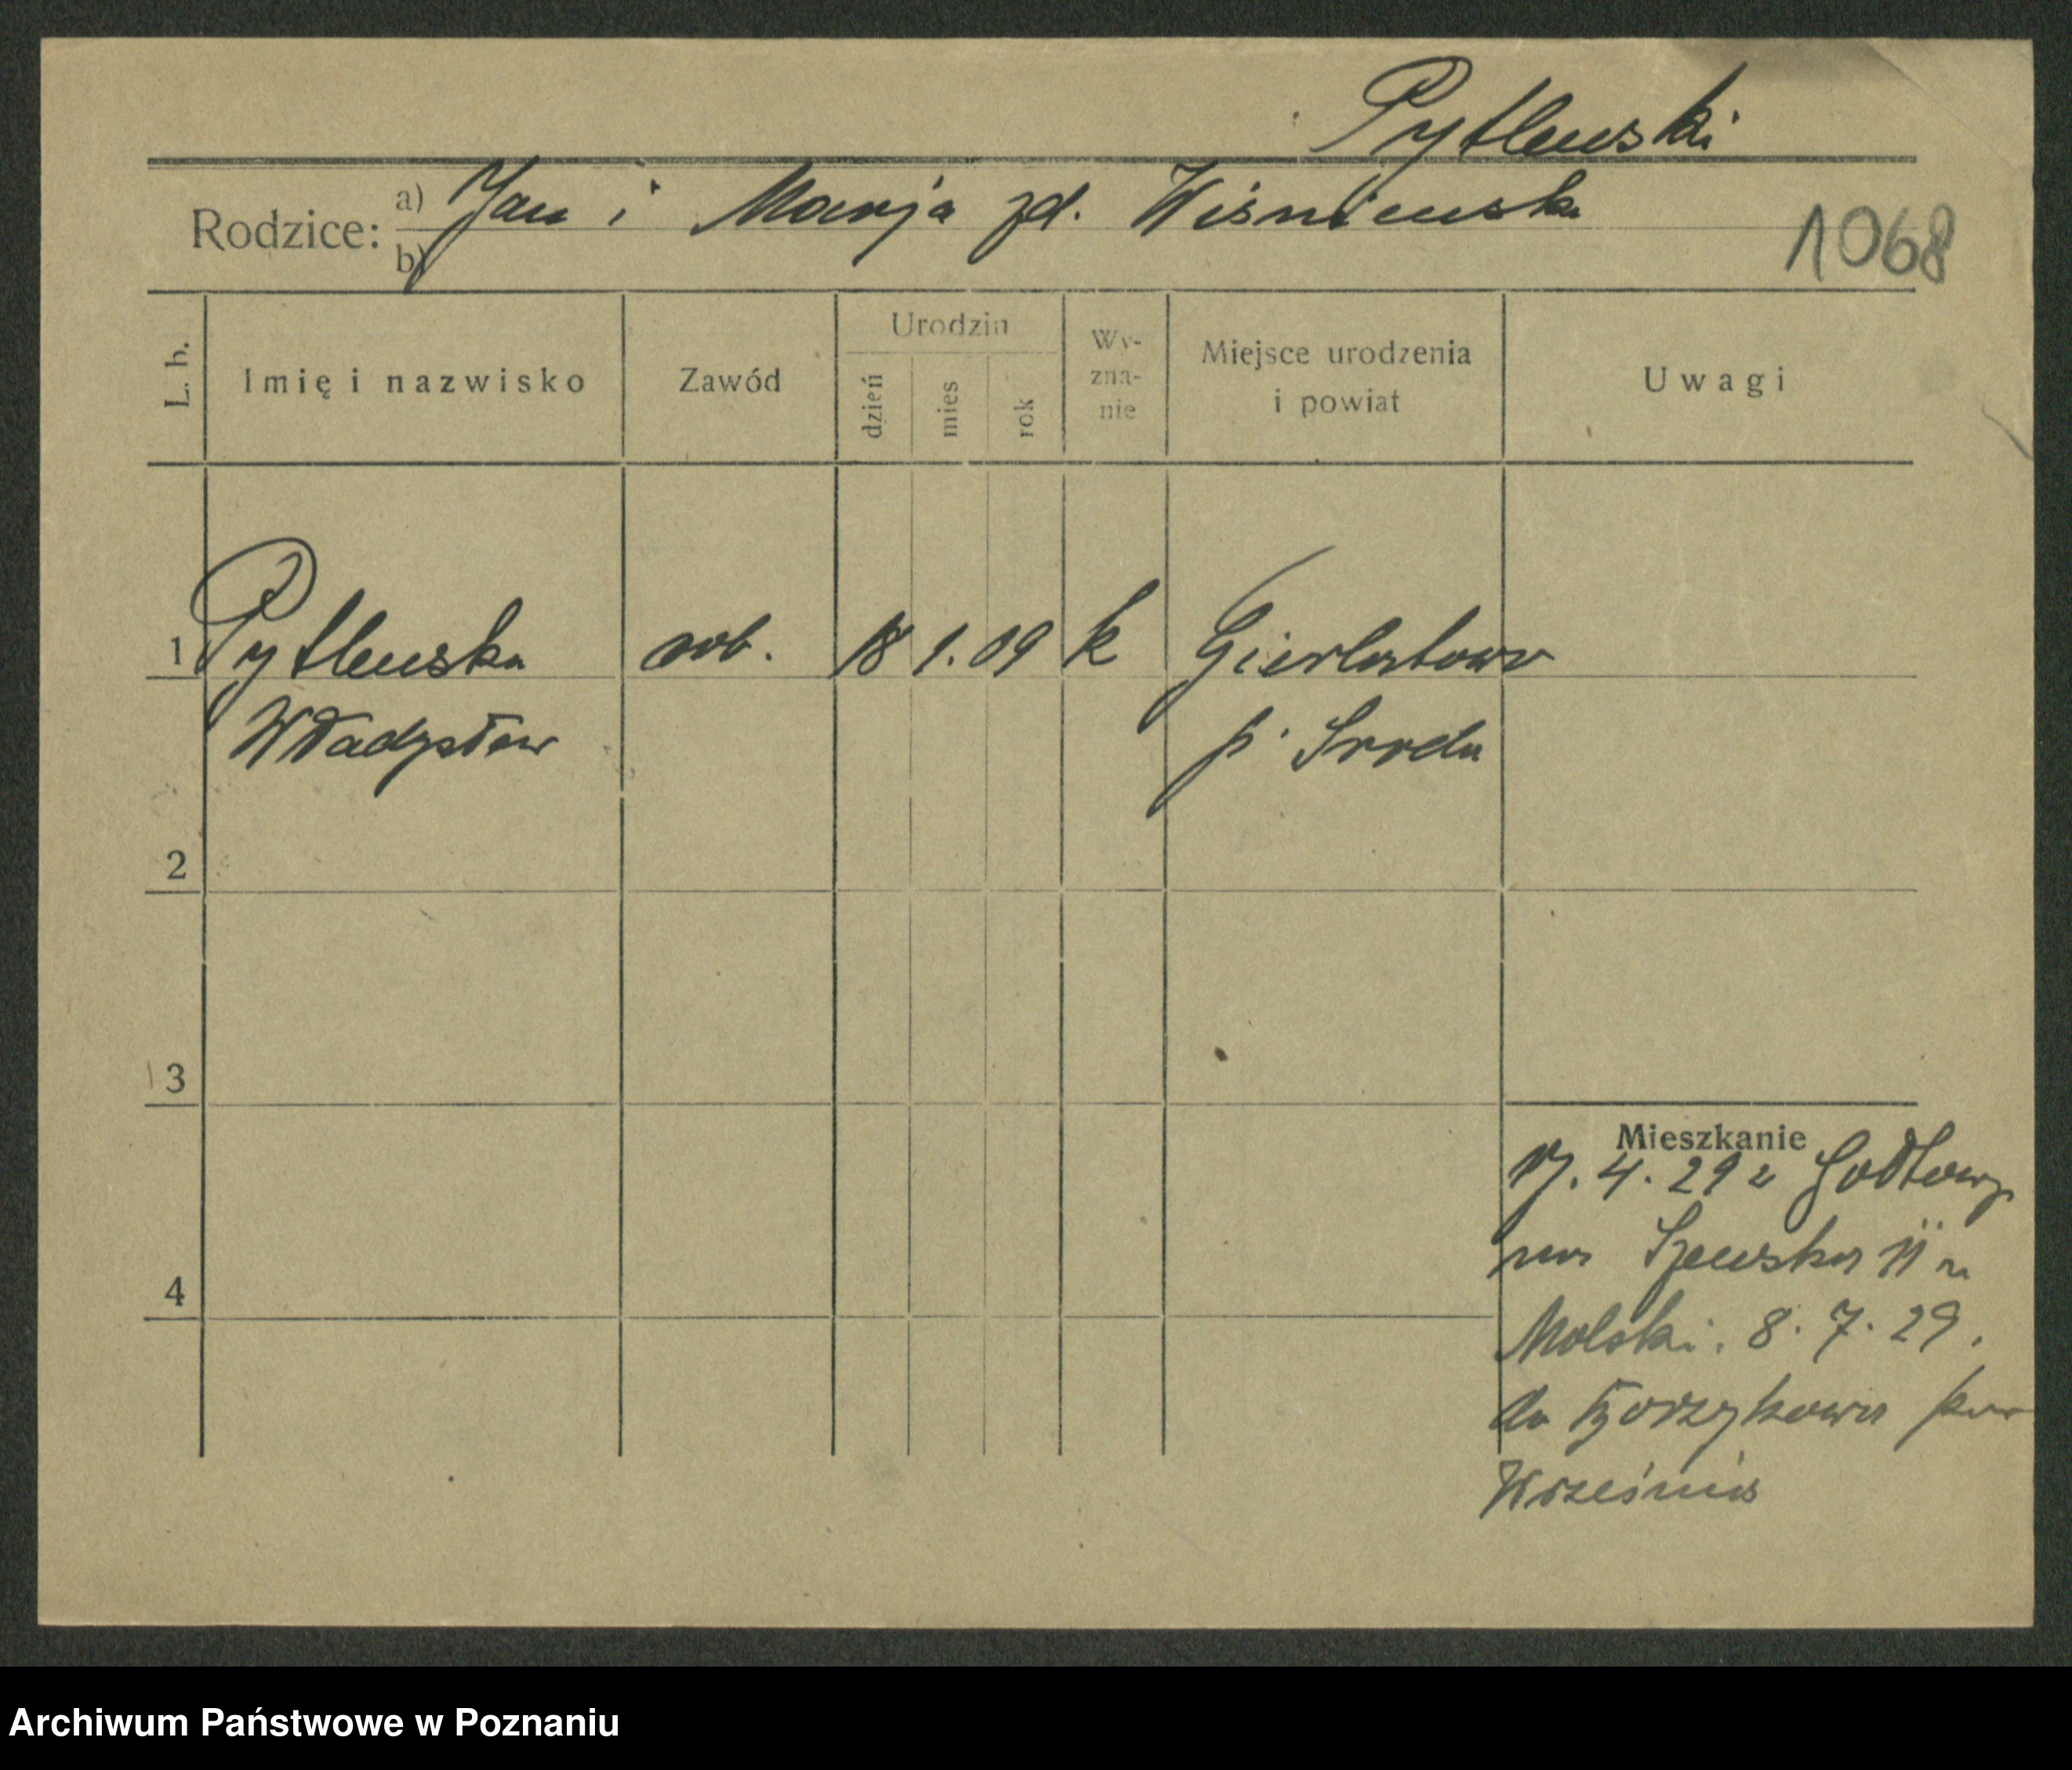 Pytlewski
Rodzice: a) Jan i Marja zd. Wiśniewska
b)
1068
L. b.
Imię i nazwisko
Zawód
Urodzin
dzień
mies
rok
Wy-
zna-
nie
Miejsce urodzenia
i powiat
Uwagi
1 Pytlewska rob. 18 1. 09 k Gierłatowo
Władysław p. Sroda
2
3
4
Mieszkanie
4. 29 z
Szewska 11 u
Molski. 8. 7. 29.
do Gorzykowa pow
Września
Archiwum Państwowe w Poznaniu